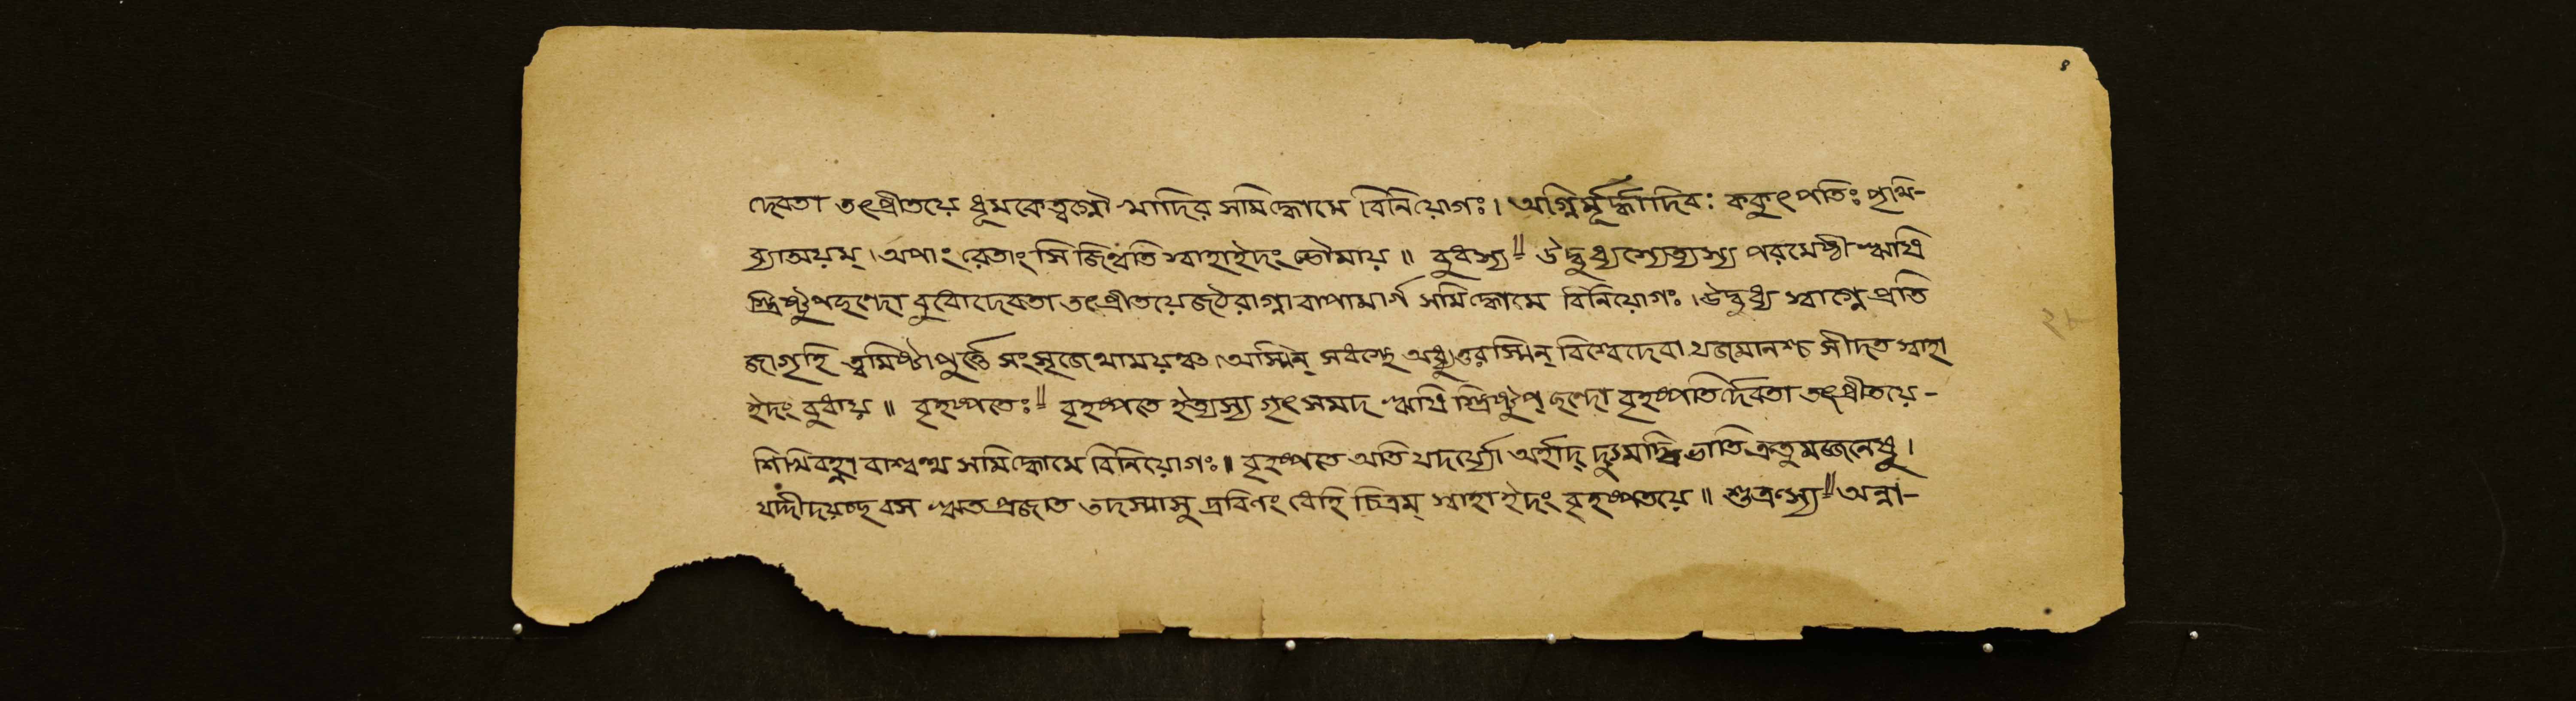 ৪
দেবতা তৎপ্রীতয়ে ধূমকেত্বগ্নৌ খাদির সমিদ্ধোমে বিনিয়োগঃ। অগ্নির্মূর্দ্ধাদিবঃ ককুৎপতিঃ পৃথি-
ব্যাঅয়ম্। অপাং রেতাংসি জিন্বতি স্বাহাইদং ভৌমায়॥ বুধস্য॥ উদ্বুধ্যস্যেত্যস্য পরমেষ্ঠী ঋষি
স্ত্রিষ্টুপছন্দো বুধোদেবতা তৎপ্রীতয়েজঠরাগ্নাবাপামার্গ সমিদ্ধোমে বিনিয়োগঃ। উদ্বুধ্য স্বাগ্নে প্রতি
জাগৃহি ত্বমিষ্টাপূর্ত্তে সংসৃজেথাময়ঞ্চ। অস্মিন্ সধস্থে অধ্যুত্তরস্মিন্ বিশ্বেদেবা যজমানশ্চ সীদত স্বাহা
ইদং বুধায়॥ বৃহস্পতেঃ॥ বৃহস্পতে ইত্যস্য গৃৎসমদ ঋষি স্ত্রিষ্টুপ্ ছন্দো বৃহস্পতির্দেবতা তৎপ্রীতয়ে-
শিখিবহ্না বাশ্বত্থ সমিদ্ধোমে বিনিয়োগঃ॥ বৃহস্পতে অতি যদর্য্যো অর্হাদ্ দ্যুমদ্বিভাতি ক্রতুমজ্জনেষু।
যদ্দীদয়চ্ছবস ঋতপ্রজাত তদস্মাসু দ্রবিণং ধেহি চিত্রম্ স্বাহা ইদং বৃহস্পতয়ে॥ শুক্রস্য॥ অন্না-